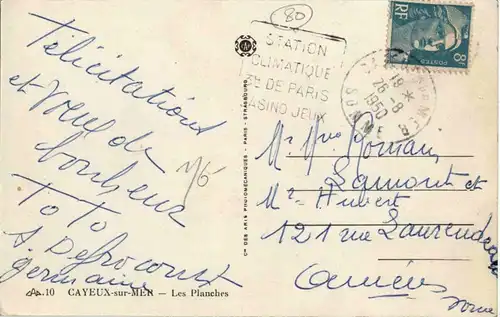 80
STATION
CLIMATIQUE
DE PARIS
CASINO JEUX
RF
POSTES
8F
19
26-8
1950
SOMME
Félicitations
et Vœux de
bonheur
ToTo
Germaine
M. Mme Romain
Lamont et
Mr Hubert
121 rue Laurendeau
Amiens
Somme
Cie DES ARTS PHOTOMÉCANIQUES - PARIS - STRASBOURG
10 CAYEUX-sur-MER — Les Planches